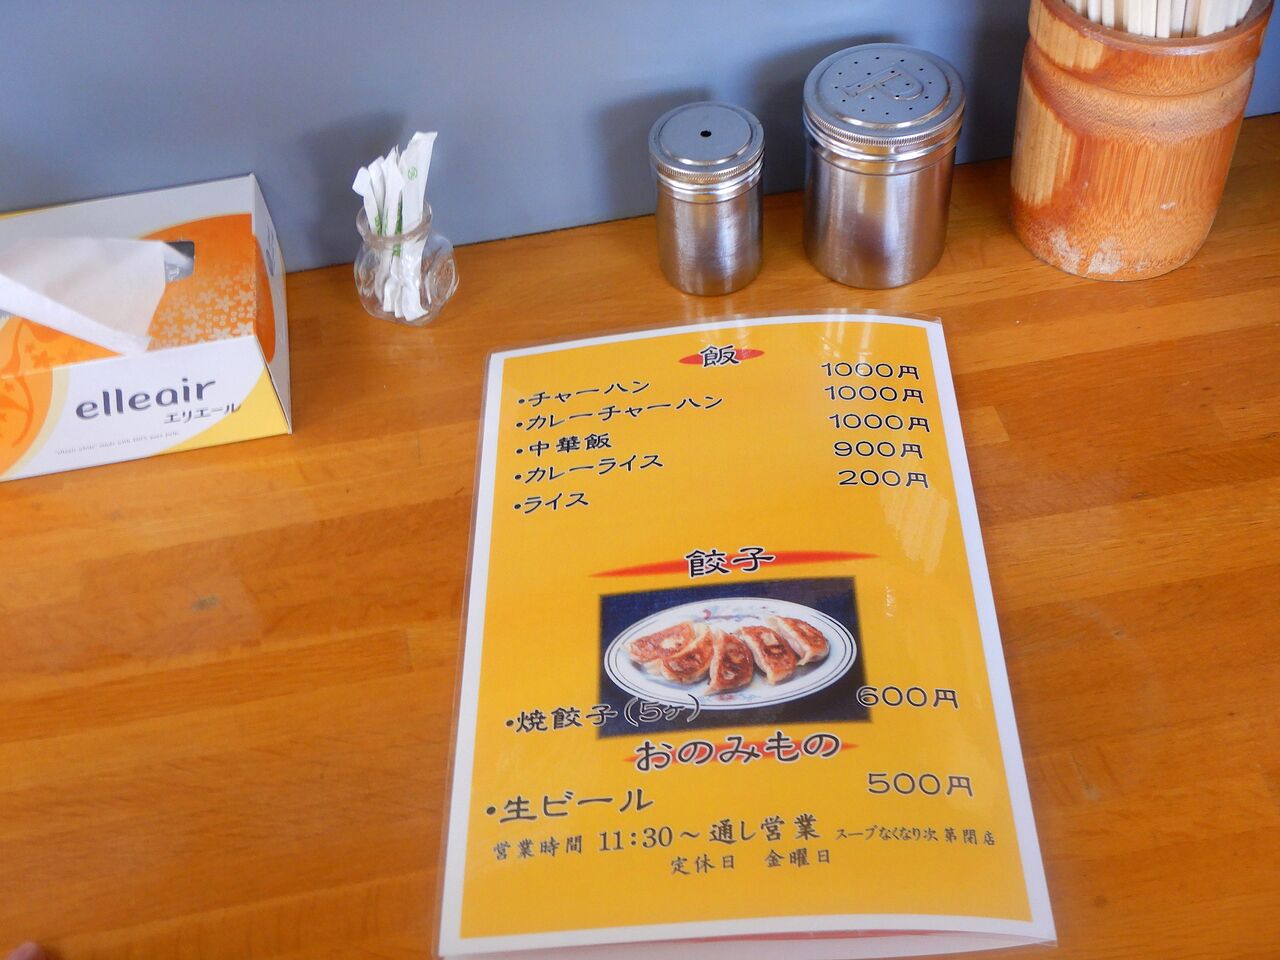 elleair
エリエール
P
飯
・チャーハン 1000円
・カレーチャーハン 1000円
・中華飯 1000円
・カレーライス 900円
・ライス 200円
餃子
・焼餃子(5ヶ) 600円
おのみもの
・生ビール 500円
営業時間 11:30～通し営業 スープなくなり次第閉店
定休日 金曜日